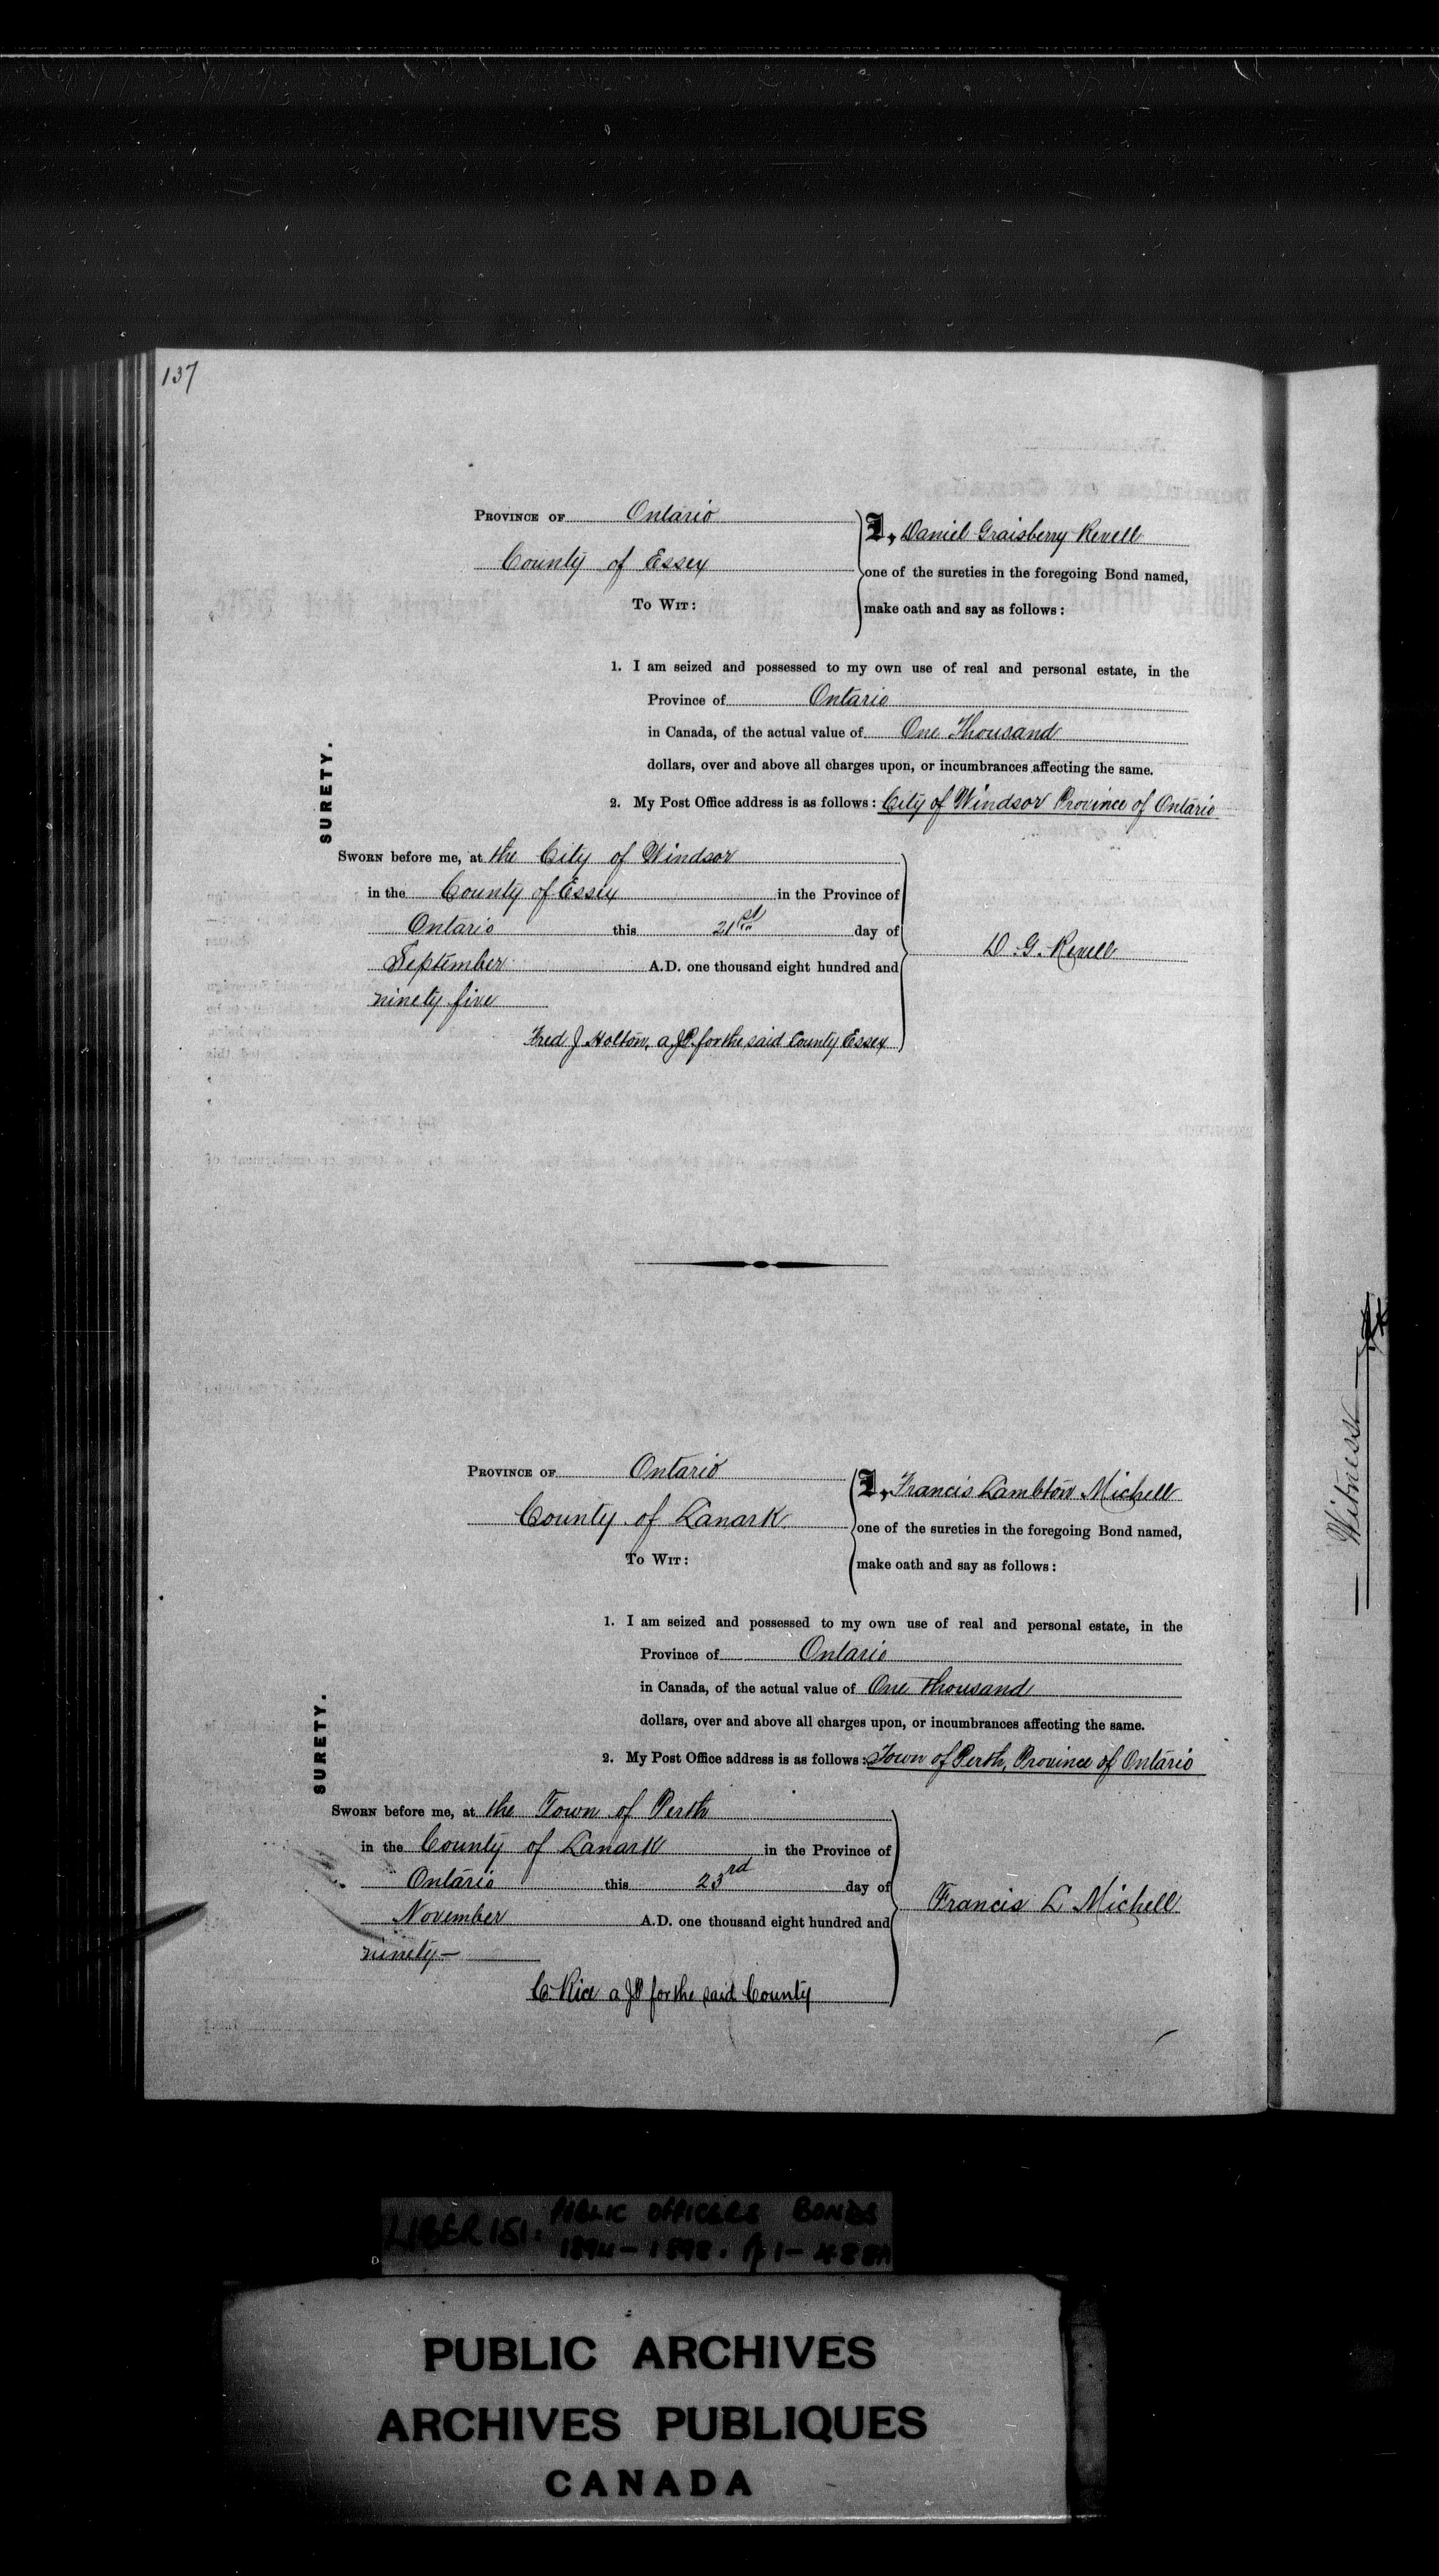 137
PROVINCE OF Ontario
County of Essex
TO WIT:
I, Daniel Graisberry Revell
one of the sureties in the foregoing Bond named,
make oath and say as follows:
1. I am seized and possessed to my own use of real and personal estate, in the
Province of Ontario
in Canada, of the actual value of One Thousand
dollars, over and above all charges upon, or incumbrances affecting the same.
2. My Post Office address is as follows: City of Windsor Province of Ontario
SURETY.
SWORN before me, at the City of Windsor
in the County of Essex in the Province of
Ontario this 21st day of
September A.D. one thousand eight hundred and
ninety five
D. G. Revell
Fred J Holton, a JP. for the said County Essex
PROVINCE OF Ontario
County of Lanark
TO WIT:
I, Francis Lambton Michell
one of the sureties in the foregoing Bond named,
make oath and say as follows:
1. I am seized and possessed to my own use of real and personal estate, in the
Province of Ontario
in Canada, of the actual value of One thousand
dollars, over and above all charges upon, or incumbrances affecting the same.
2. My Post Office address is as follows: Town of Perth, Province of Ontario
SURETY.
SWORN before me, at the Town of Perth
in the County of Lanark in the Province of
Ontario this 23rd day of
November A.D. one thousand eight hundred and
ninety—
Francis L Michell
C. Rice a JP for the said County
— Witness —
LIBER 151. PUBLIC OFFICERS BONDS
1894-1898. p 1-488A
PUBLIC ARCHIVES
ARCHIVES PUBLIQUES
CANADA